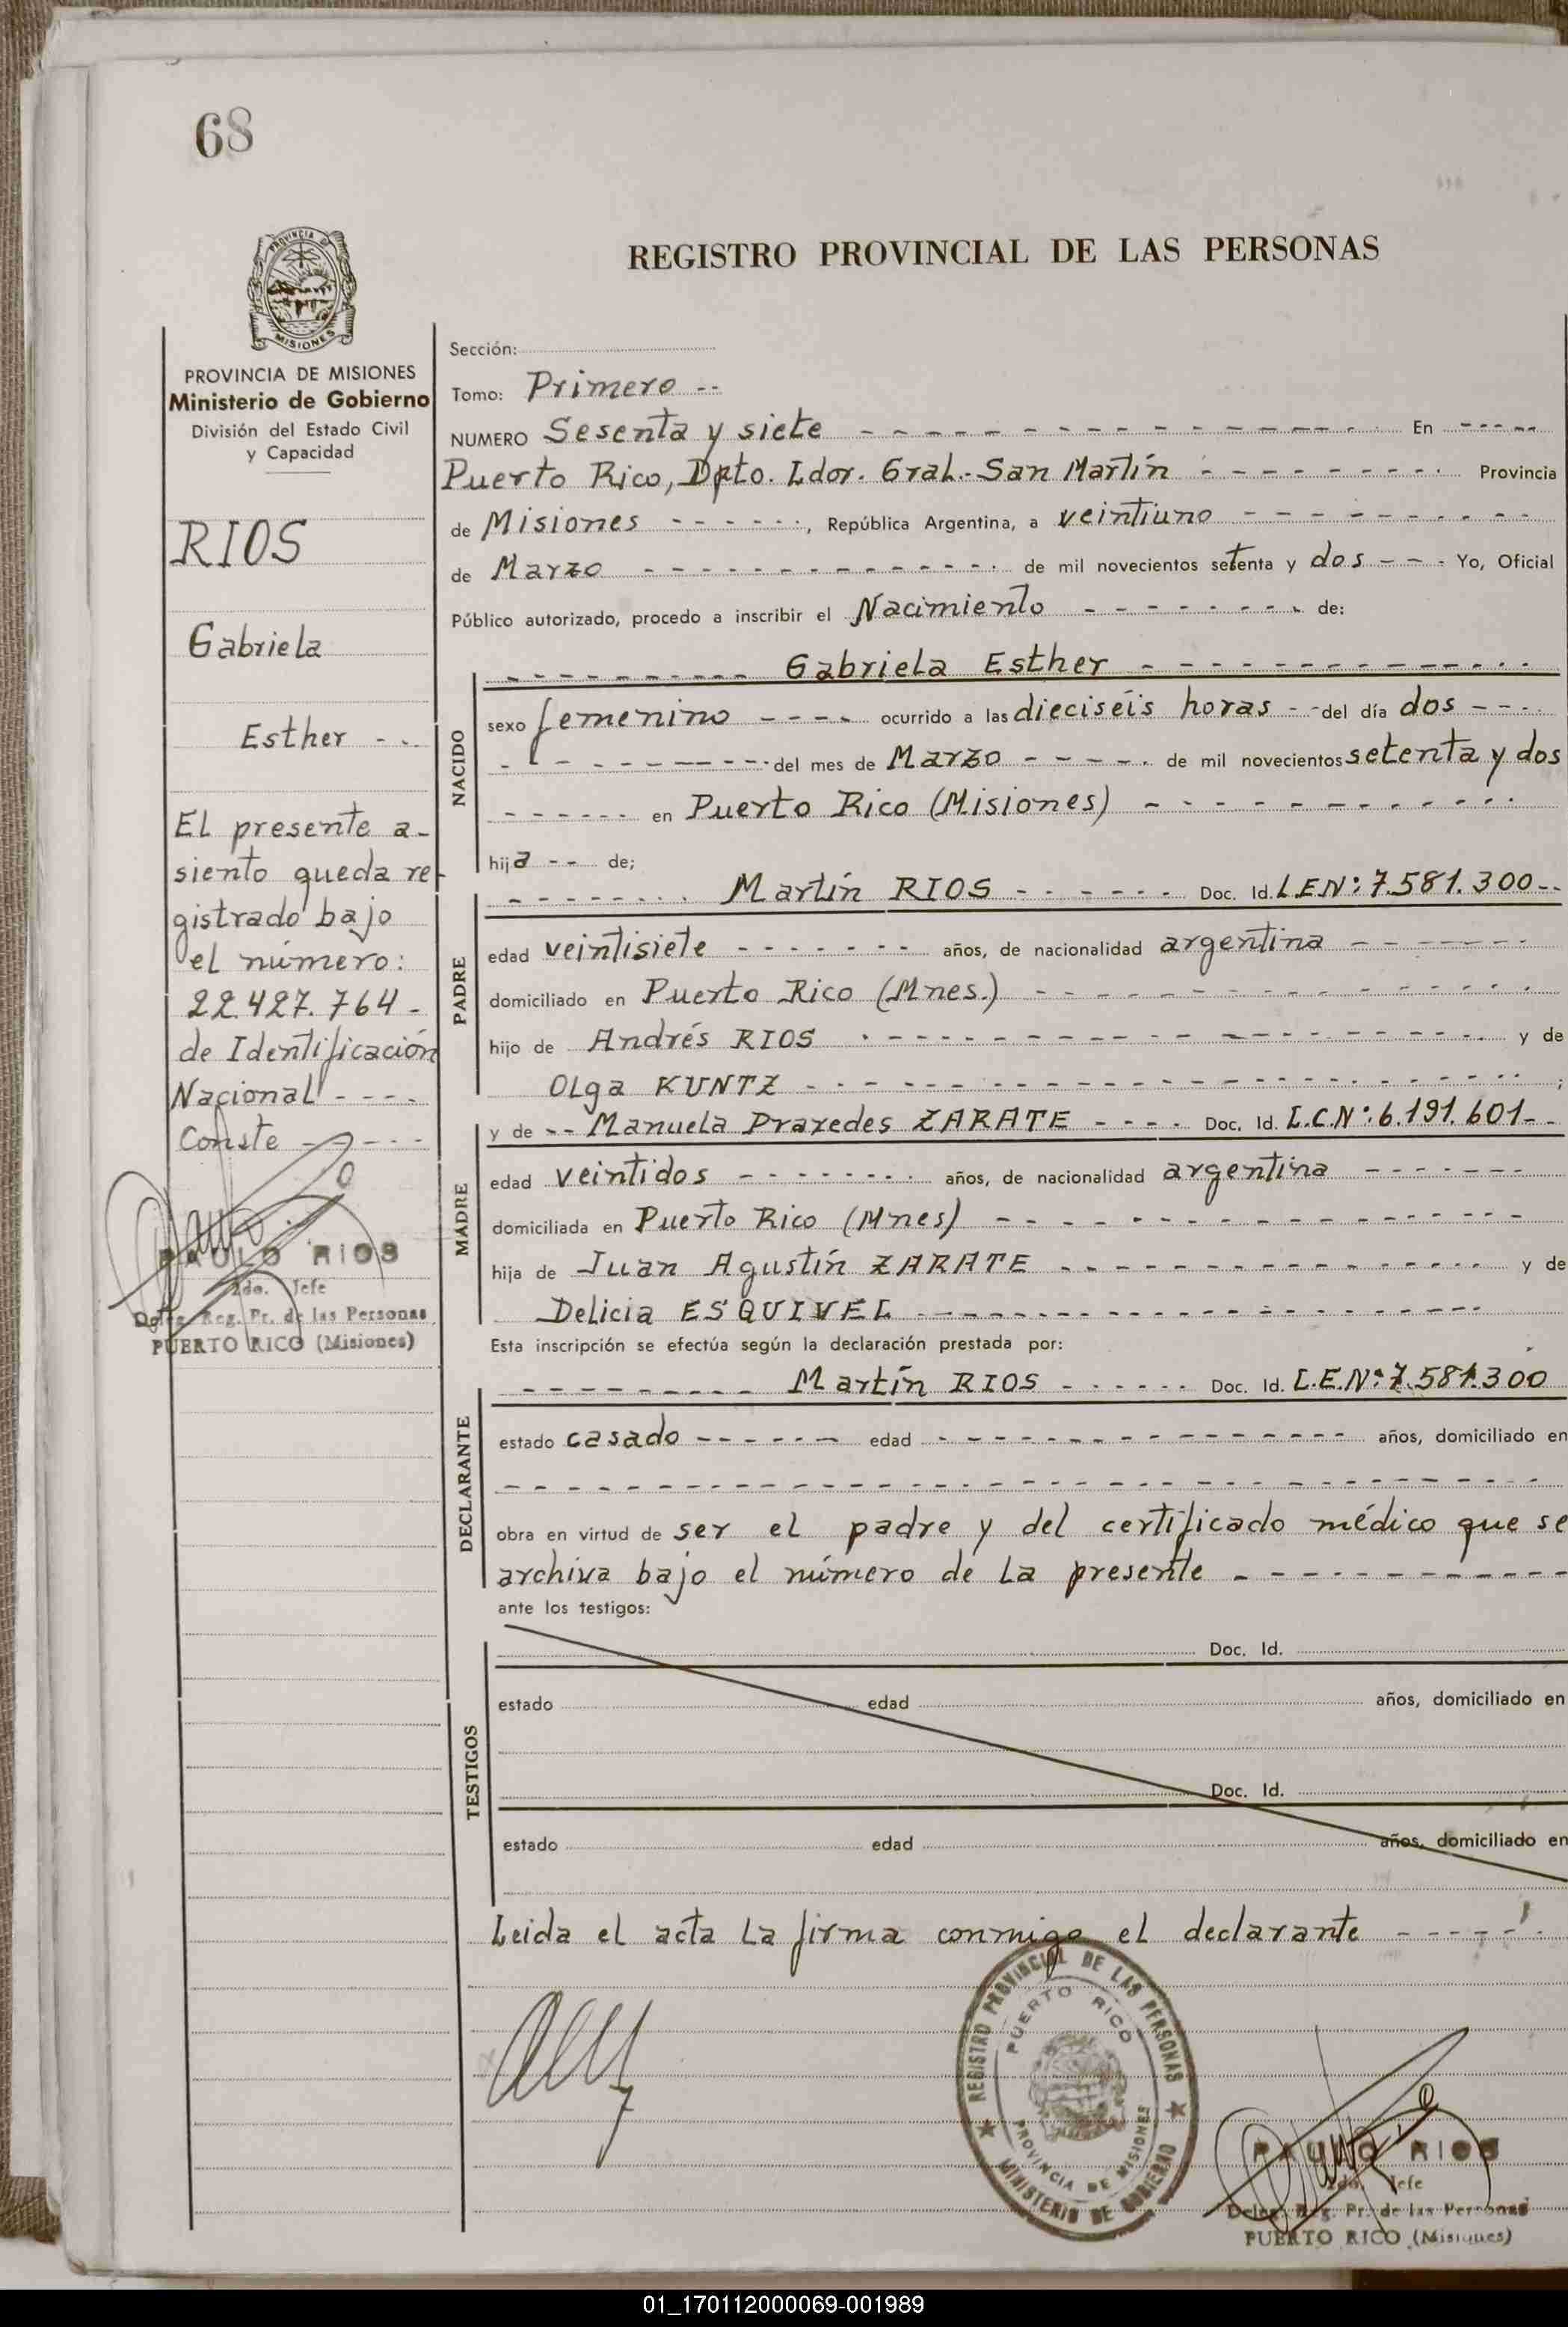 68
PROVINCIA DE
MISIONES
PROVINCIA DE MISIONES
Ministerio de Gobierno
División del Estado Civil
y Capacidad
RIOS
Gabriela
Esther - - -
El presente a-
siento queda re-
gistrado bajo
el número:
22.427.764-
de Identificación
Nacional - - - -
Conste - - - - -
PAULO RIOS
2do. Jefe
Deleg. Reg. Pr. de las Personas
PUERTO RICO (Misiones)
REGISTRO PROVINCIAL DE LAS PERSONAS
Sección:
Tomo: Primero --
NUMERO Sesenta y siete - - - - En - - - - -
Puerto Rico, Dpto. Ldor. Gral. San Martín - - - - Provincia
de Misiones - - - - - -, República Argentina, a veintiuno - - - -
de Marzo - - - - de mil novecientos setenta y dos - - - Yo, Oficial
Público autorizado, procedo a inscribir el Nacimiento - - - - de:
NACIDO
- - - - Gabriela Esther - - - -
sexo femenino - - - - ocurrido a las dieciséis horas - - del día dos - - - -
- - - - del mes de Marzo - - - - de mil novecientos setenta y dos
- - - - en Puerto Rico (Misiones) - - - -
hija - - de;
PADRE
- - - - Martín RIOS - - - - Doc. Id. L.E.N°: 7.581.300--
edad veintisiete - - - - años, de nacionalidad argentina - - - -
domiciliado en Puerto Rico (Mnes.) - - - -
hijo de Andrés RIOS - - - - y de
Olga KUNTZ - - - - ;
MADRE
y de -- Manuela Praxedes ZARATE - - - - Doc. Id. L.C.N°: 6.191.601--
edad veintidos - - - - años, de nacionalidad argentina - - - -
domiciliada en Puerto Rico (Mnes) - - - -
hija de Juan Agustín ZARATE - - - - y de
Delicia ESQUIVEL - - - -
Esta inscripción se efectúa según la declaración prestada por:
DECLARANTE
- - - - Martín RIOS - - - - Doc. Id. L.E.N°: 7.581.300
estado casado - - - - edad - - - - años, domiciliado en
- - - -
obra en virtud de ser el padre y del certificado médico que se
archiva bajo el número de la presente - - - -
ante los testigos:
TESTIGOS
Doc. Id.
estado edad años, domiciliado en
Doc. Id.
estado edad años, domiciliado en
Leida el acta la firma conmigo el declarante - - - -
REGISTRO PROVINCIAL DE LAS PERSONAS
PUERTO RICO
PROVINCIA DE MISIONES
MINISTERIO DE GOBIERNO
PAULO RIOS
2do. Jefe
Deleg. Reg. Pr. de las Personas
PUERTO RICO (Misiones)
01_170112000069-001989